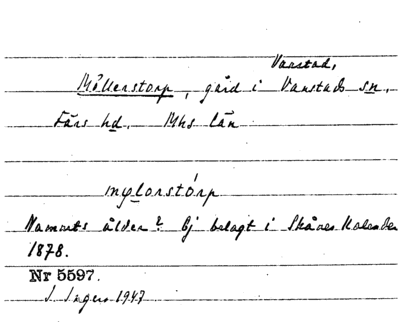 Vanstad,
Möllerstorp, gård i Vanstads sn.
Färs hd. Mhs län
mylorstórp
Namnets ålder? Ej belagt i Skånes Kalender
1878.
Nr 5597.
I. Ingers 1947